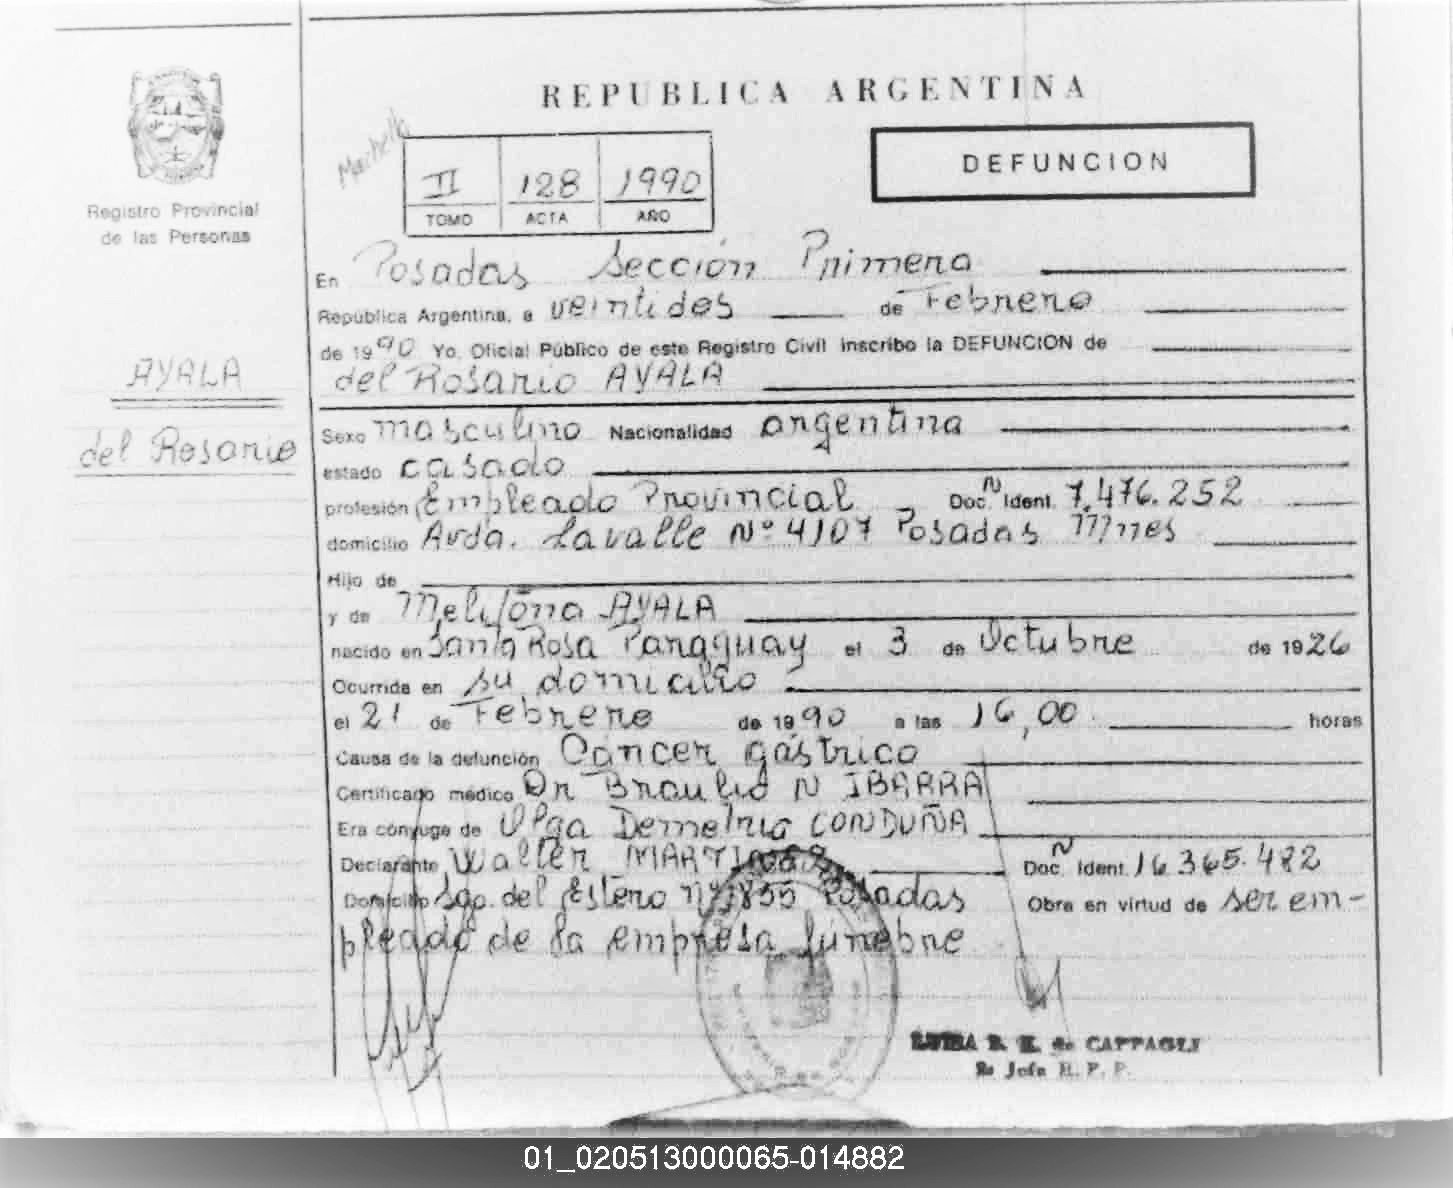 REPUBLICA ARGENTINA
DEFUNCION
II 128 1990
TOMO ACTA AÑO
Registro Provincial
de las Personas
AYALA
del Rosario
En Posadas Sección Primera
República Argentina, a veintidos de Febrero
de 1990 Yo, Oficial Público de este Registro Civil inscribo la DEFUNCION de
del Rosario AYALA
Sexo masculino Nacionalidad argentina
estado casado
profesión Empleado Provincial Doc. N Ident. 7.476.252
domicilio Avda. Lavalle Nº 4107 Posadas Mnes
Hijo de
y de AYALA
nacido en Santa Rosa Paraguay el 3 de Octubre de 1926
Ocurrida en su domicilio
el 21 de Febrero de 1990 a las 16,00 horas
Causa de la defunción Cáncer gástrico
Certificado médico Dr Braulio N IBARRA
Era cónyuge de Olga Demetria CONDUÑA
Declarante Walter Doc. N Ident. 16.365.482
Domicilio Sgo. del Estero Posadas Obra en virtud de ser em-
pleado de la empresa fúnebre
de CAPPAGLI
Jefe R. P. P.
01_020513000065-014882